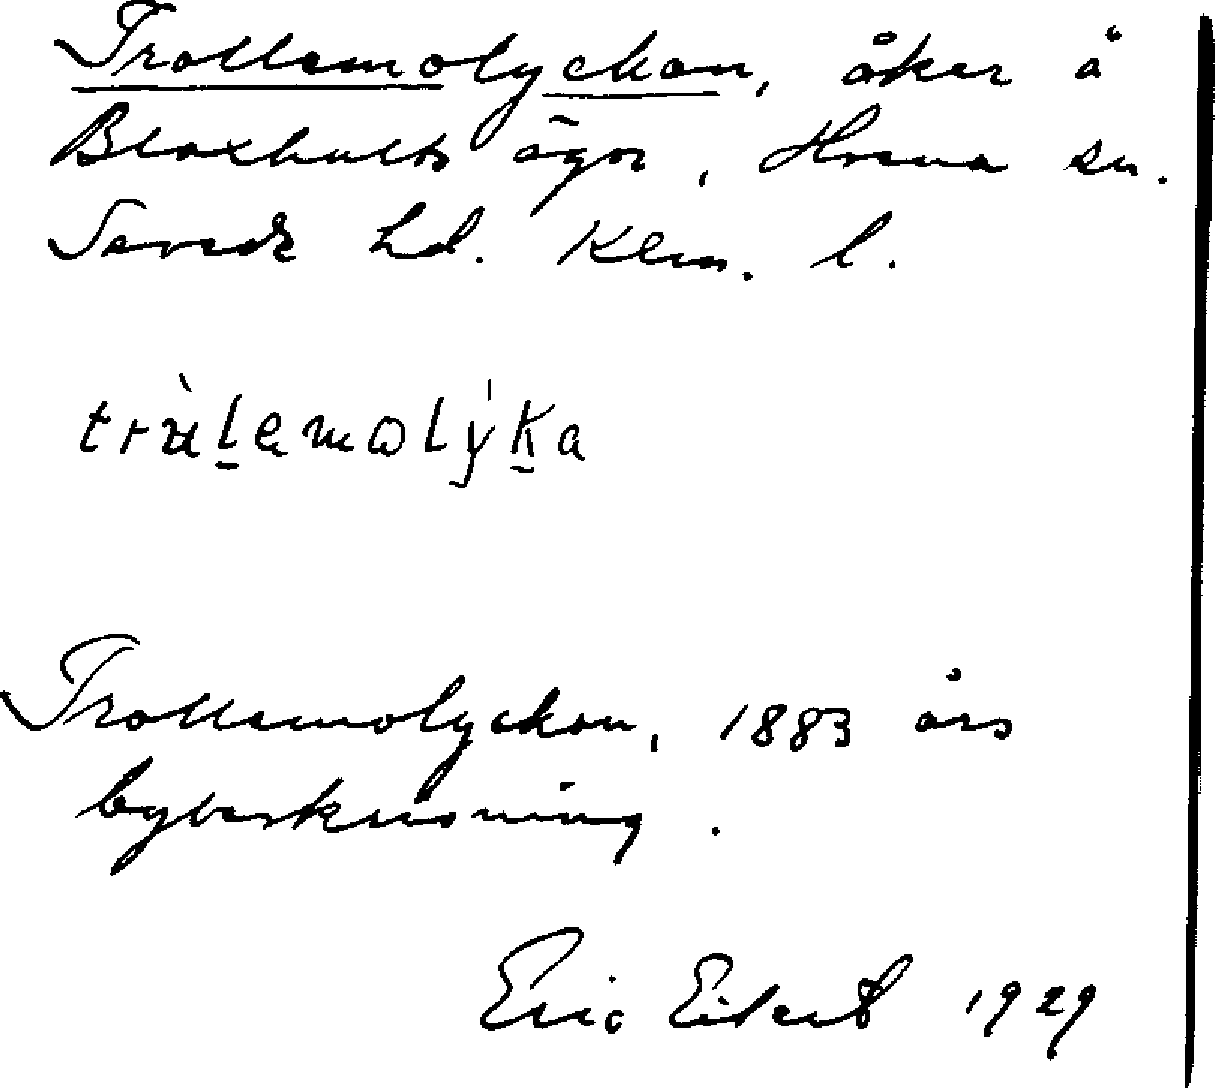 Trollemolyckan, åker å
Bloxhults ägor, Hvena sn.
Sevede hd. Kalm. l.
trùlemolýka
Trollemolyckan, 1883 års
bybeskrivning.
Eric Eikert 1929